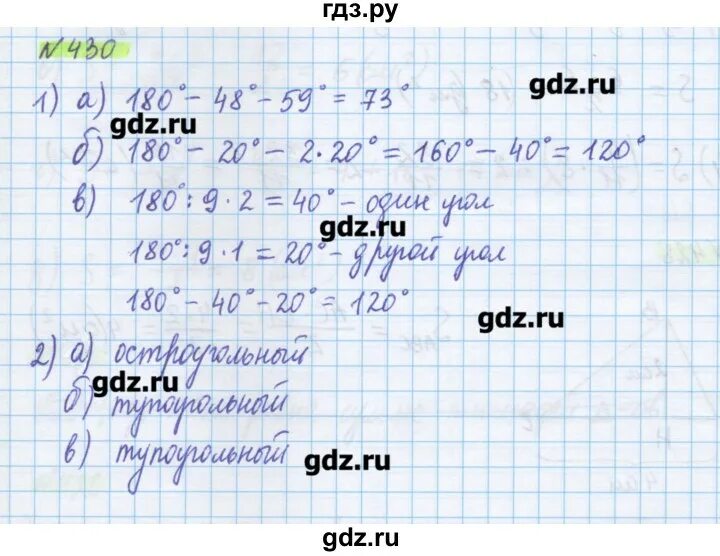 гдз.ру
№430
1) а) 180° - 48° - 59° = 73°
gdz.ru
gdz.ru
б) 180° - 20° - 2·20° = 160° - 40° = 120°
в) 180° : 9 · 2 = 40° - один угол
gdz.ru
180° : 9 · 1 = 20° - другой угол
180° - 40° - 20° = 120°
gdz.ru
2) а) остроугольный
gdz.ru
б) тупоугольный
в) тупоугольный
gdz.ru
gdz.ru